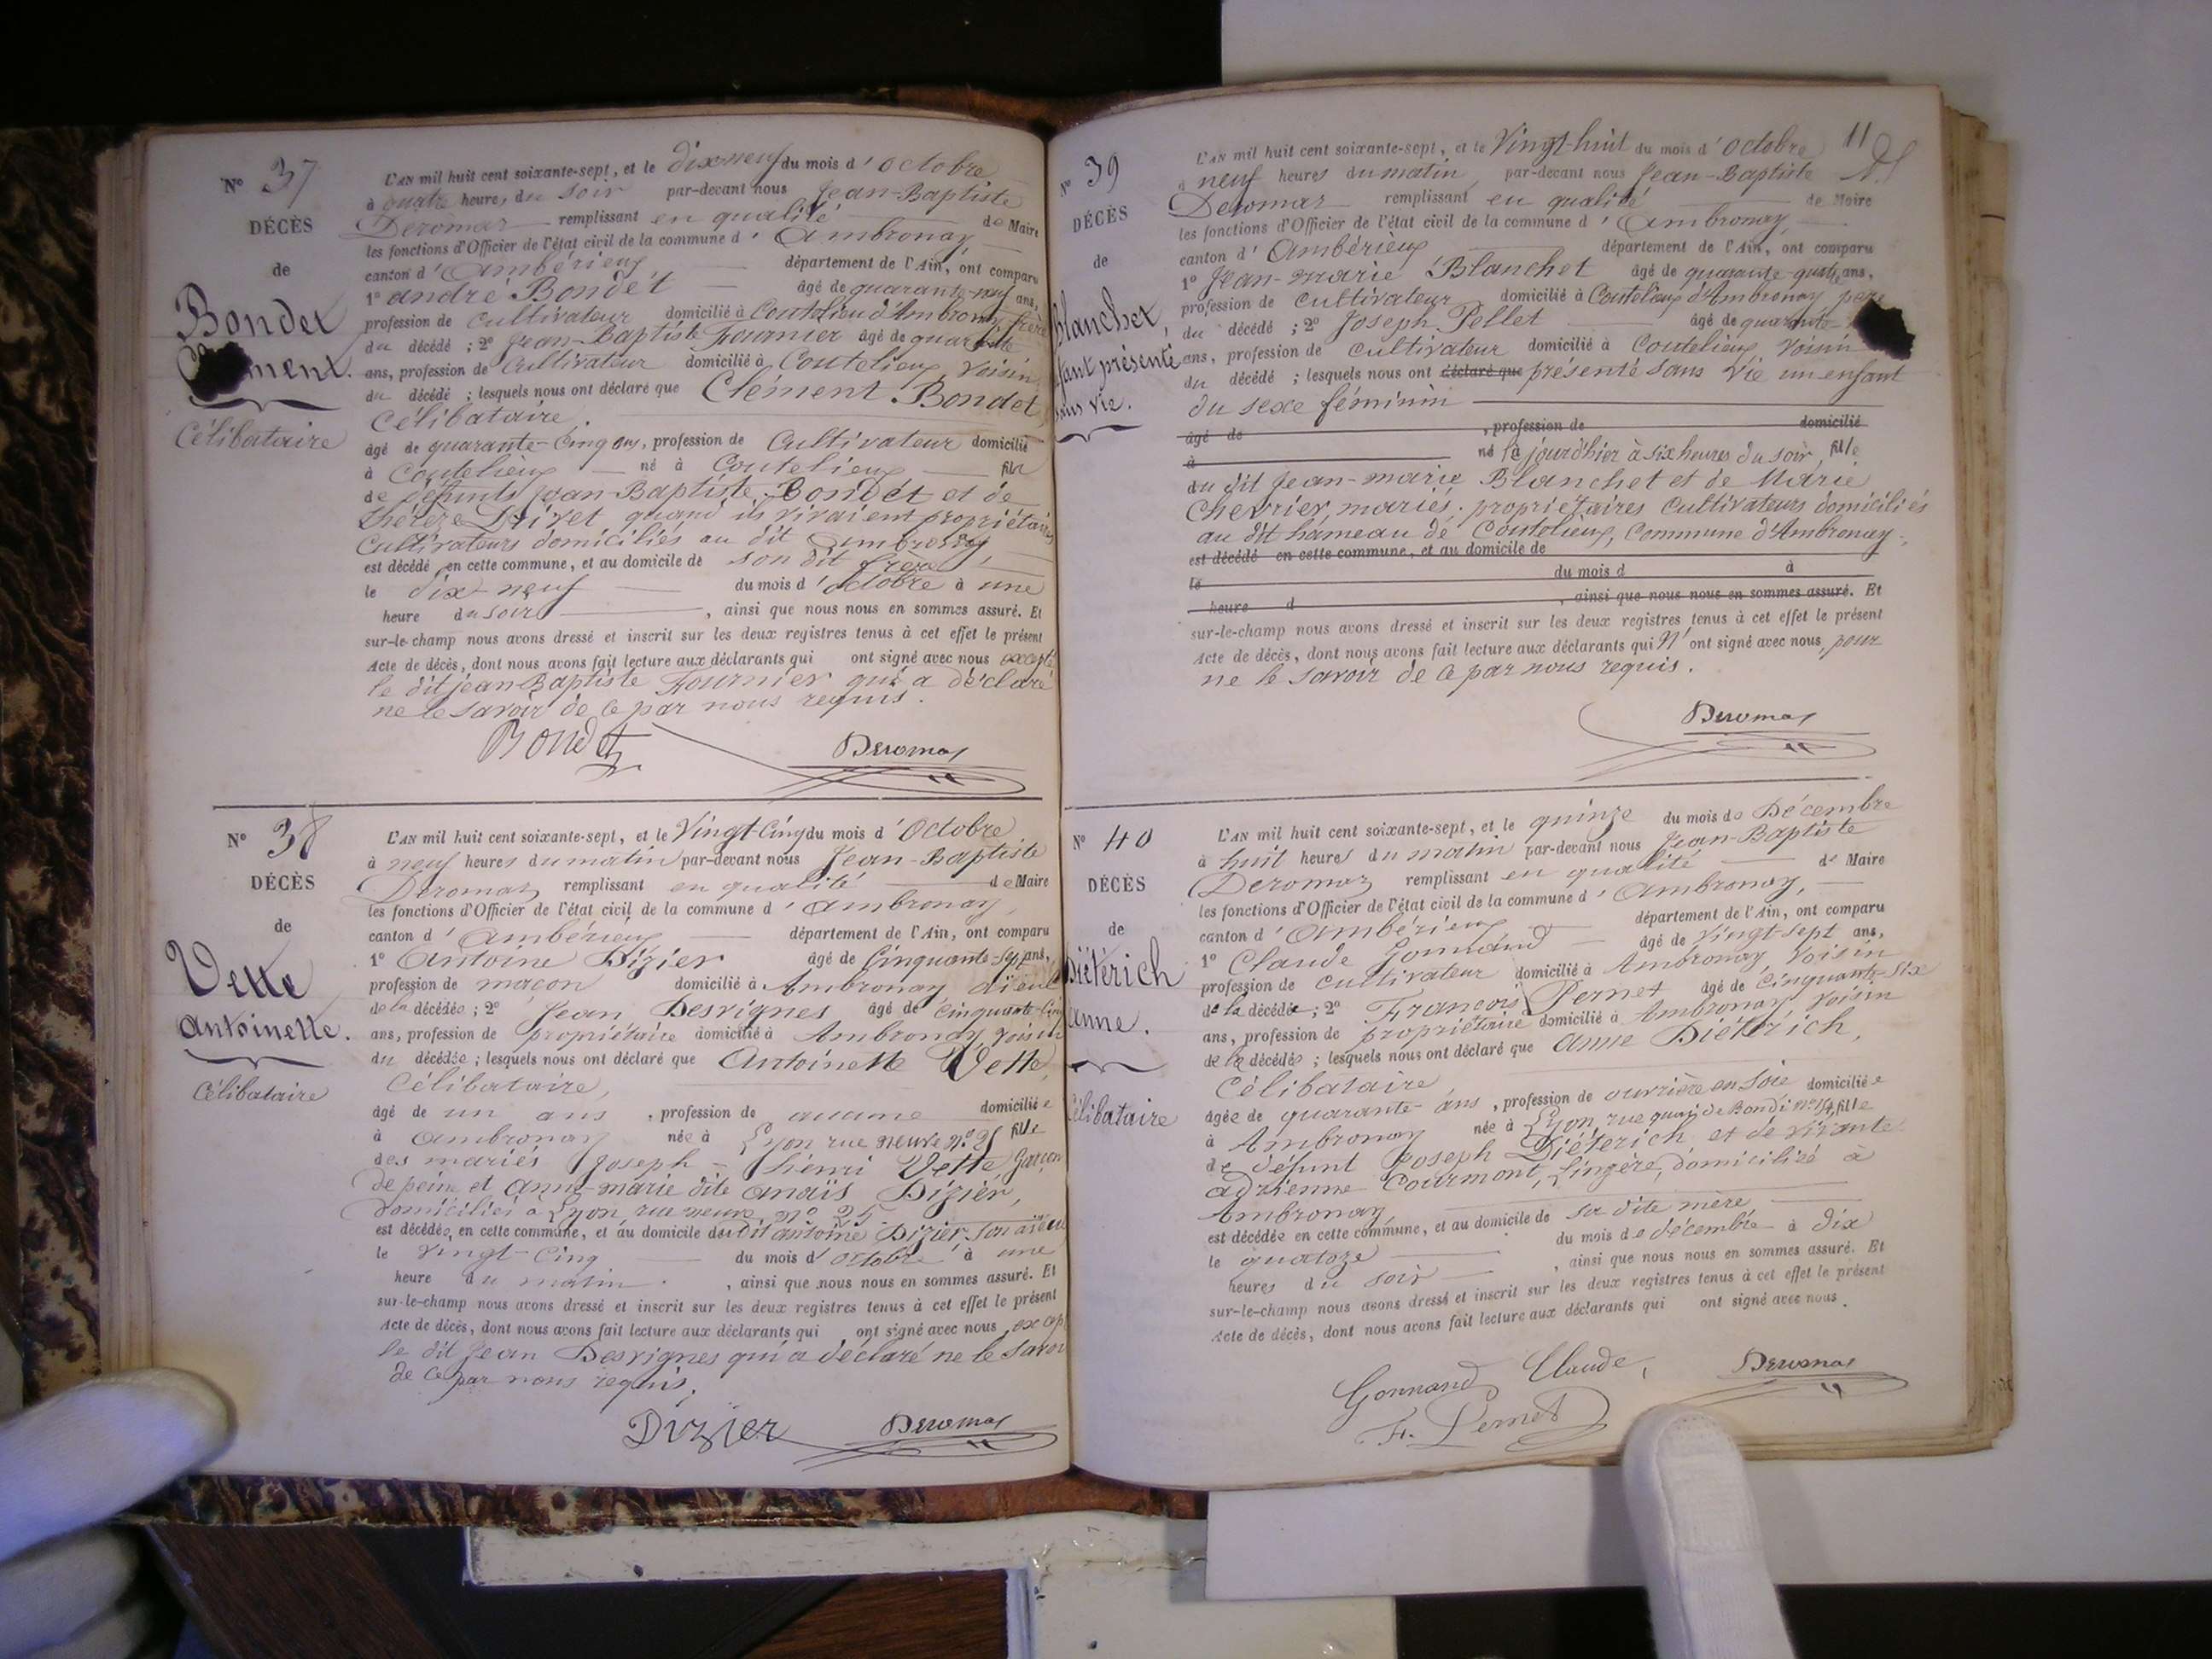 N° 37
DÉCÈS
de
Bondet
Célibataire
L'AN mil huit cent soixante-sept, et le dix-neuf du mois d'octobre
à quatre heures du soir par-devant nous Jean-Baptiste
Deromas remplissant en qualité de Maire
les fonctions d'Officier de l'état civil de la commune d'Ambronay,
canton d'Ambérieux département de l'Ain, ont comparu
1° andré Bondet âgé de quarante-neuf ans,
profession de cultivateur domicilié à Coutelieu d'Ambronay frère
du décédé ; 2° Jean-Baptiste Fournier âgé de quarante
ans, profession de Cultivateur domicilié à Coutelieux voisin
du décédé ; lesquels nous ont déclaré que Clément Bondet
Célibataire.
âgé de quarante-Cinq ans, profession de Cultivateur domicilié
à Coutelieux né à Coutelieux fils
de défunts Jean-Baptiste Bondet et de
thérèze Drivet quand ils vivaient propriétaires
Cultivateurs domiciliés au dit Ambronay
est décédé en cette commune, et au domicile de son dit frère,
le dix-neuf du mois d'octobre à une
heure du soir, ainsi que nous nous en sommes assuré. Et
sur-le-champ nous avons dressé et inscrit sur les deux registres tenus à cet effet le présent
Acte de décès, dont nous avons fait lecture aux déclarants qui ont signé avec nous excepté
le dit jean-Baptiste Fournier qui a déclaré
ne le savoir de ce par nous requis.
Bondet Deromas
N° 38
DÉCÈS
de
Vette
Antoinette.
Célibataire
L'AN mil huit cent soixante-sept, et le Vingt-Cinq du mois d'Octobre
à neuf heures du matin par-devant nous Jean-Baptiste
Deromas remplissant en qualité de Maire
les fonctions d'Officier de l'état civil de la commune d'Ambronay
canton d'Ambérieux département de l'Ain, ont comparu
1° Antoine Dizier âgé de Cinquante-sept ans,
profession de maçon domicilié à Ambronay aïeul
de la décédée ; 2° Jean Desvignes âgé de Cinquante-Cinq
ans, profession de propriétaire domicilié à Ambronay voisin
du décédée ; lesquels nous ont déclaré que Antoinette Vette,
Célibataire,
âgé de un ans, profession de aucune domiciliée
à Ambronay née à Lyon rue neuve n° 25 fille
des mariés Joseph-henri Vette Garçon
de peine et Anne-marie dite Anaïs Dizier,
domiciliés à Lyon, rue neuve, n° 25.
est décédée, en cette commune, et au domicile du dit antoine Dizier, son aïeul
le Vingt-Cinq du mois d'octobre à une
heure du matin, ainsi que nous nous en sommes assuré. Et
sur-le-champ nous avons dressé et inscrit sur les deux registres tenus à cet effet le présent
Acte de décès, dont nous avons fait lecture aux déclarants qui ont signé avec nous, except
le dit Jean Desvignes qui a déclaré ne le savoir
de ce par nous requis.
Dizier Deromas
11
N° 39
DÉCÈS
de
Blanchet,
fant présenté
sans vie.
L'AN mil huit cent soixante-sept, et le Vingt-huit du mois d'octobre
à neuf heures du matin par-devant nous Jean-Baptiste
Deromas remplissant en qualité de Maire
les fonctions d'Officier de l'état civil de la commune d'Ambronay,
canton d'Ambérieux département de l'Ain, ont comparu
1° Jean-Marie Blanchet âgé de quarante-quatre ans,
profession de Cultivateur domicilié à Coutelieux d'Ambronay père
du décédé ; 2° Joseph Pellet âgé de quarante
ans, profession de Cultivateur domicilié à Coutelieux voisin
du décédé ; lesquels nous ont déclaré que présenté sans vie un enfant
du sexe féminin
âgé de, profession de domicilié
à né le jour d'hier à six heures du soir, fille
du dit Jean-marie Blanchet et de Marie
Chevrier, mariés, propriétaires Cultivateurs domiciliés
au dit hameau de Coutelieux, Commune d'Ambronay.
est décédé en cette commune, et au domicile de
le du mois d à
heure d, ainsi que nous nous en sommes assuré. Et
sur-le-champ nous avons dressé et inscrit sur les deux registres tenus à cet effet le présent
Acte de décès, dont nous avons fait lecture aux déclarants qui n'ont signé avec nous, pour
ne le savoir de ce par nous requis.
Deromas
N° 40
DÉCÈS
de
Diétérich
anne.
Célibataire
L'AN mil huit cent soixante-sept, et le quinze du mois de Décembre
à huit heures du matin par-devant nous Jean-Baptiste
Deromas remplissant en qualité de Maire
les fonctions d'Officier de l'état civil de la commune d'Ambronay,
canton d'Ambérieux département de l'Ain, ont comparu
1° Claude Gonnand âgé de vingt-sept ans,
profession de cultivateur domicilié à Ambronay voisin
de la décédée ; 2° François Pernet âgé de Cinquante-six
ans, profession de propriétaire domicilié à Ambronay voisin
de la décédée ; lesquels nous ont déclaré que Anne Diétérich,
Célibataire,
âgée de quarante ans, profession de ouvrière en Soie domiciliée
à Ambronay née à Lyon, rue quai de Bondi n° fille
de défunt Joseph Diétérich et de vivante
adrienne Courmont, lingère, domiciliée à
Ambronay
est décédée en cette commune, et au domicile de sa dite mère
le quatorze du mois de décembre à dix
heures du soir, ainsi que nous nous en sommes assuré. Et
sur-le-champ nous avons dressé et inscrit sur les deux registres tenus à cet effet le présent
Acte de décès, dont nous avons fait lecture aux déclarants qui ont signé avec nous.
Gonnand Claude, Deromas
F. Pernet